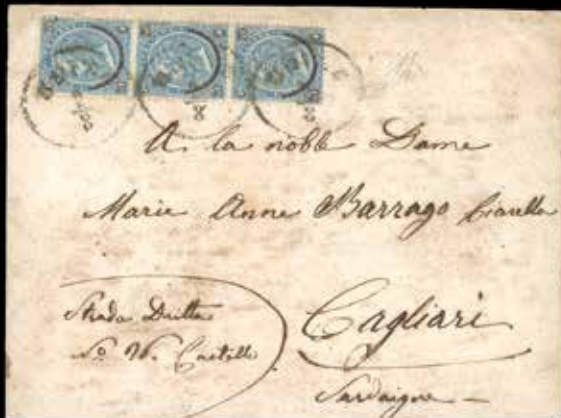 A la noble Dame
Marie Anne Barrago Ciarella
Strada Dritta
No 26. Castello
Cagliari
Sardaigne -